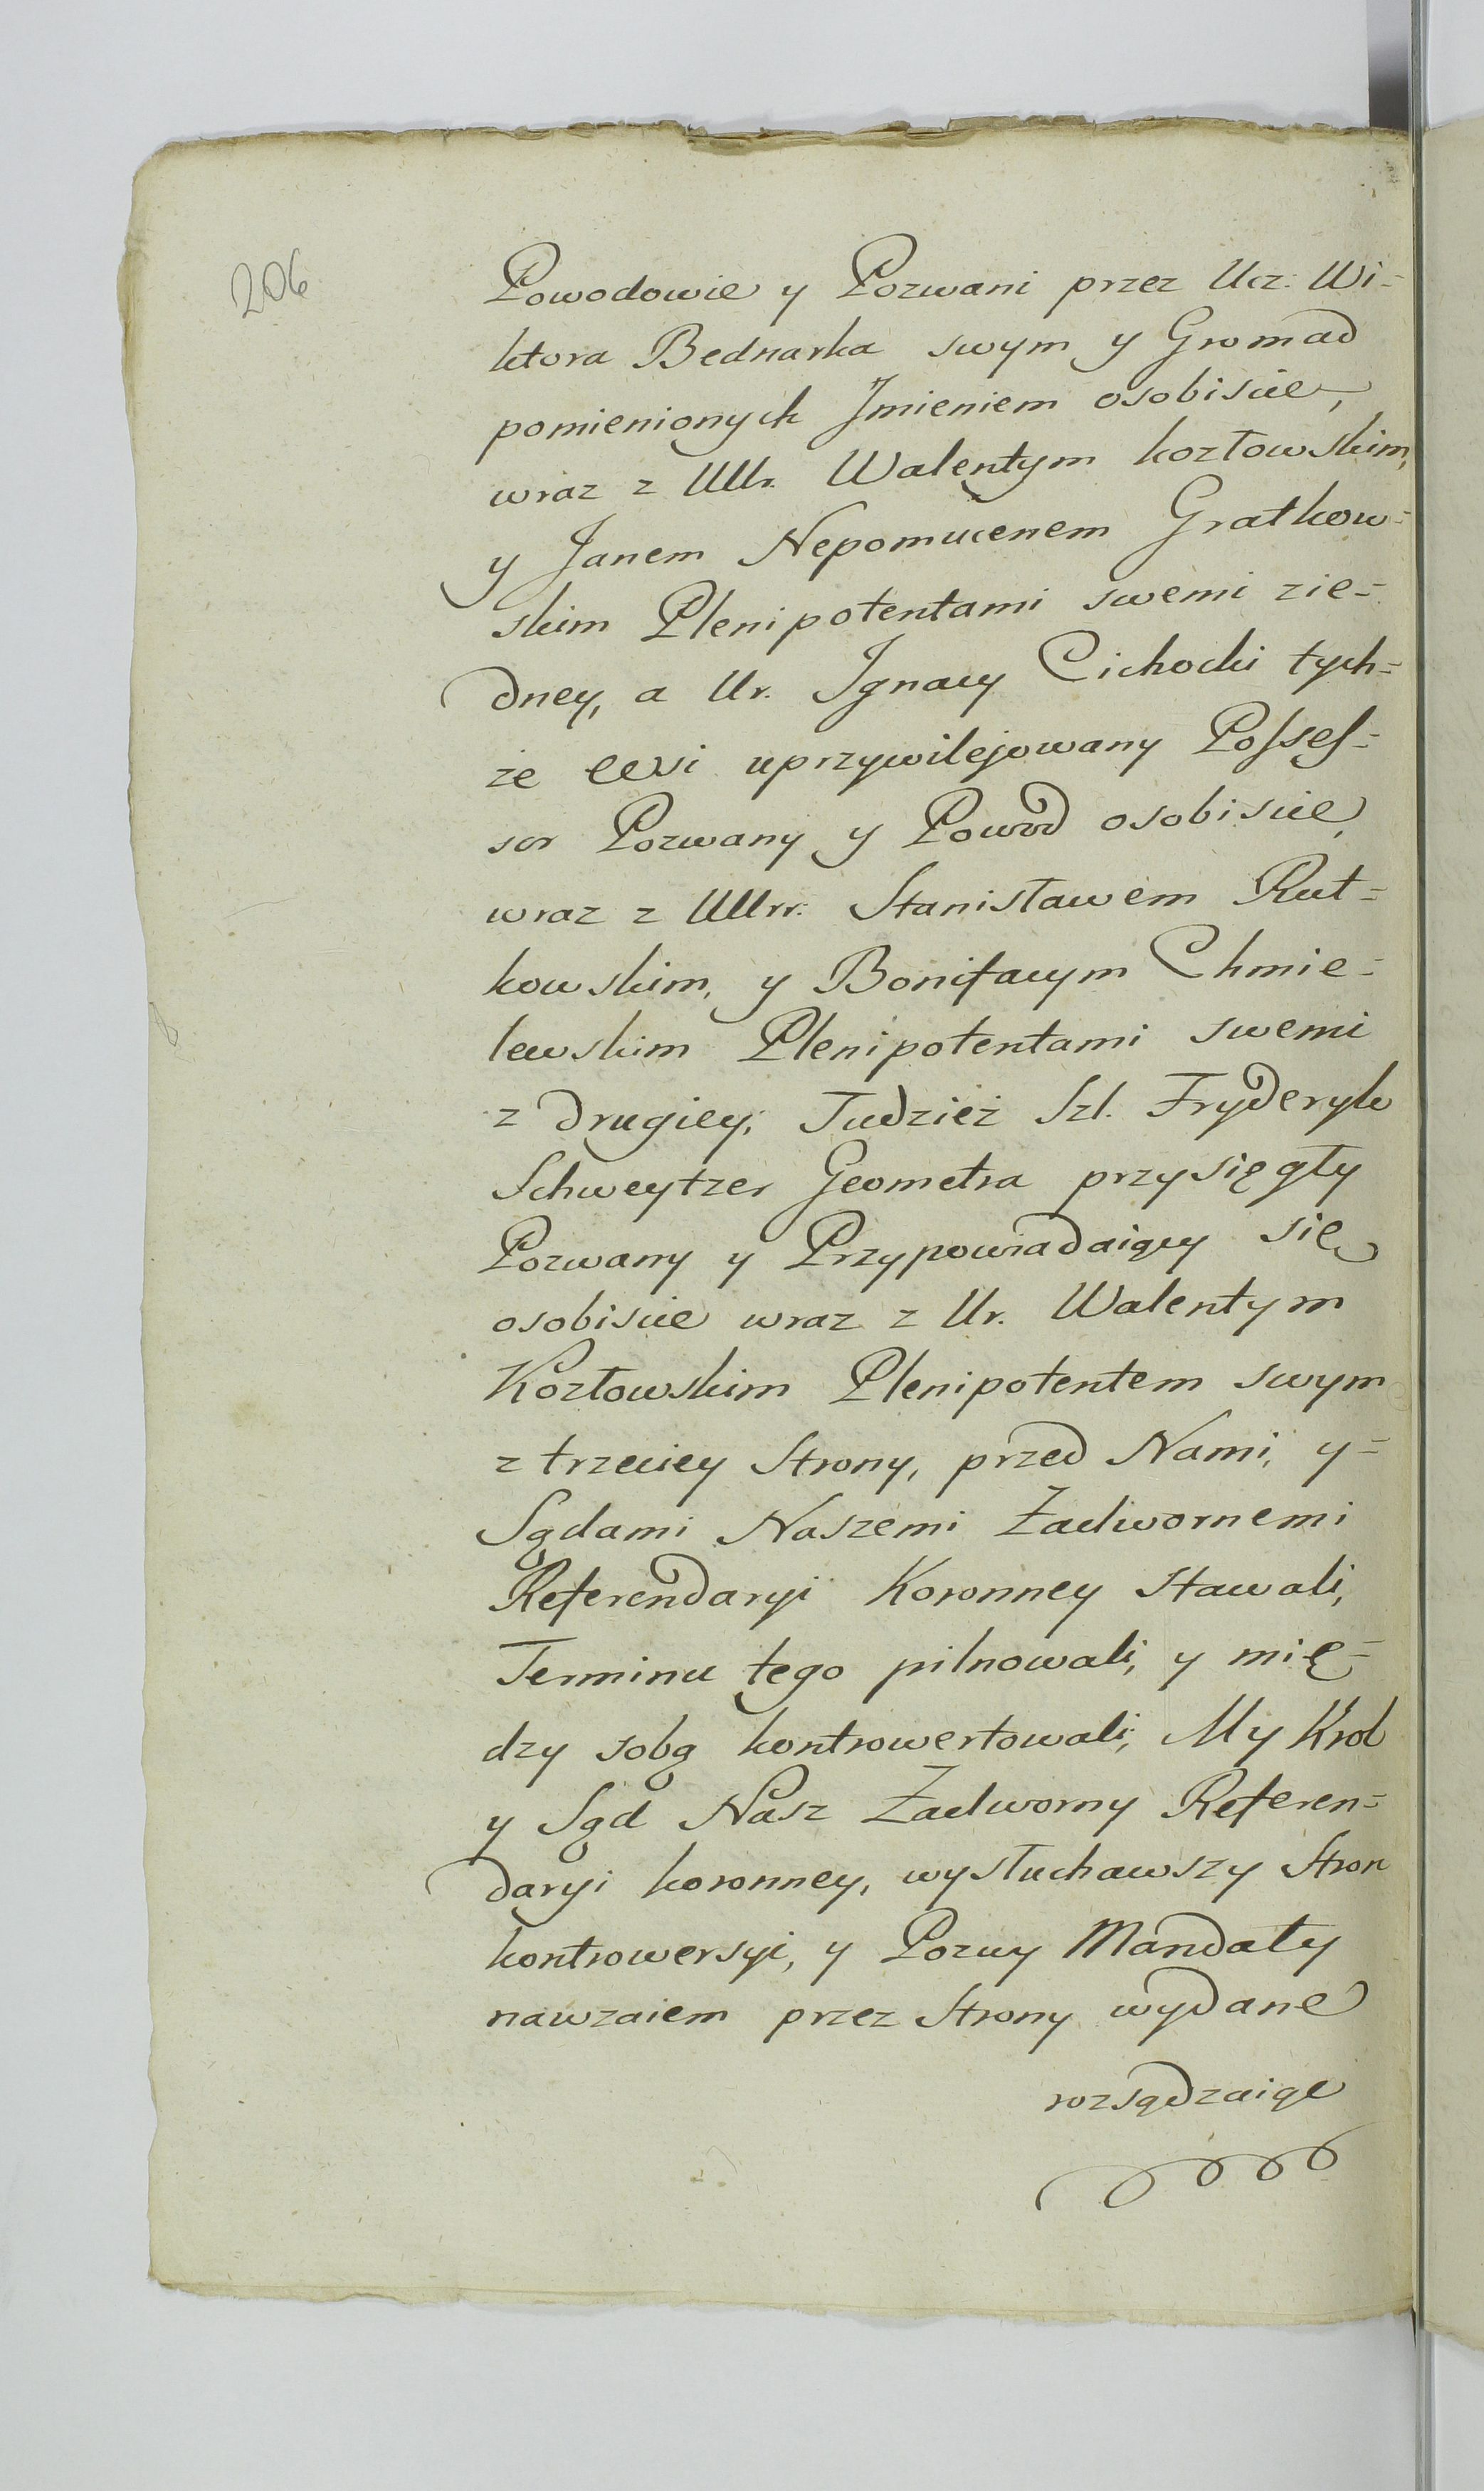 206
Powodowie y Pozwani przez Ucz: Wi-
ktora Bednarka swym y Gromad
pomienionych Jmieniem osobiscie,
wraz z UUr. Walentym kozłowskim,
y Janem Nepomucenem Gratkow-
skim Plenipotentami swemi zie-
dney, a Ur. Jgnacy Cichocki tych-
że wsi uprzywilejowany Possess-
sor Pozwany y Powod osobiscie,
wraz z UUrr: Stanisławem Rut-
kowskim, y Bonifacym Chmie-
lewskim Plenipotentami swemi
z drugiey; Tudzież Szl. Fryderyk
Schweytzer Geometra przysięgły
Pozwany y Przypowiadaiący się
osobiscie wraz z Ur. Walentym
Kozłowskim Plenipotentem swym
z trzeciey Strony, przed Nami, y-
Sądami Naszemi Zadwornemi
Referendaryi Koronney stawali,
Terminu tego pilnowali, y mię-
dzy sobą kontrowertowali; My Krol
y Sąd Nasz Zadworny Referen-
daryi koronney, wysłuchawszy Stron
kontrowersyi, y Pozwy Mandaty
nawzaiem przez Strony wydane
rozsądzaiąc